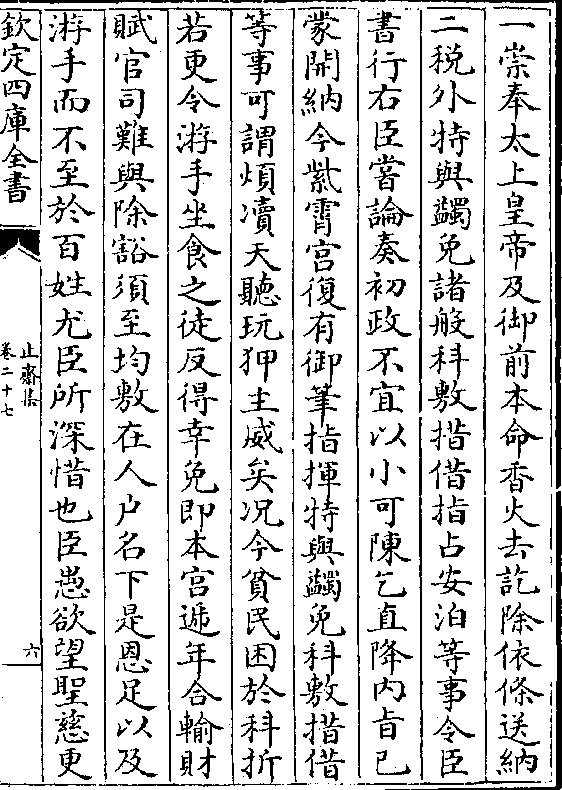 一崇奉太上皇帝及御前本命香火去訖除依條送納
二税外特與蠲免諸般科敷措借指占安泊等事令臣
書行右臣嘗論奏初政不宜以小可陳乞直降内㫖已
蒙開納今紫霄宫復有御筆指揮特與蠲免科敷措借
等事可謂煩凟天聽玩狎主威矣况今貧民困於科折
若更令游手坐食之徒反得幸免即本宫遞年合輸財
賦官司難與除豁須至均敷在人户名下是恩足以及
游手而不至於百姓尤臣所深惜也臣愚欲望聖慈更
欽定四庫全書
止齋集
卷二十七
六